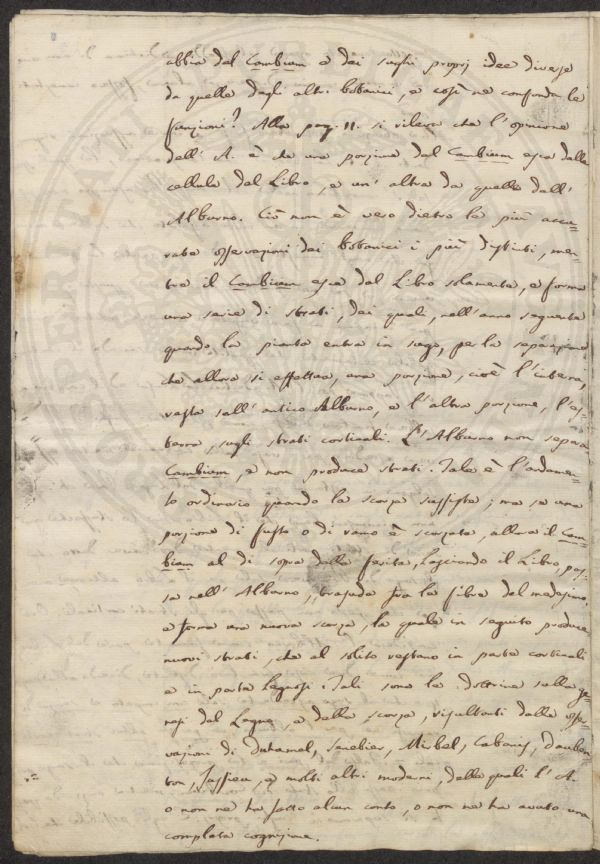 abbia del Cambium e dei sughi proprj idee diverse
da quelle degli altri botanici, e così ne confonda le
funzioni? Alla pag. 11. si rileva che l'opinione
dell' A. è che una porzione del Cambium esca dalle
cellule del Libro, e un' altra da quelle dell'
Alburno. Ciò non è vero dietro le più accu-
rate osservazioni dei botanici i più distinti, men-
tre il Cambium esce dal Libro solamente, e forma
una serie di strati, dei quali, nell'anno seguente
quando la pianta entra in sugo, per la separazione
che allora si effettua, una porzione, cioè l'interna,
resta sull' antico Alburno, e l'altra porzione, l'es-
terna, sugli strati corticali. L'Alburno non separa
Cambium, e non produce strati. Tale è l'andamen-
to ordinario quando la scorza sussiste; ma se una
porzione di fusto o di ramo è scorzata, allora il Cam-
bium al di sopra della ferita, lasciando il Libro, pas-
sa nell' Alburno, trasuda fra le fibre del medesimo,
e forma una nuova scorza, la quale in seguito produce
nuovi strati, che al solito restano in parte corticali
e in parte legnosi. Tali sono le dottrine sulla ge-
nesi del Legno, e della scorza, risultanti dalle osser-
vazioni di Duhamel, Senebier, Mirbel, Cabanis, Dauben-
ton, e molti altri moderni, delle quali l' A.
o non ne ha fatto alcun conto, o non ne ha avuto una
completa cognizione.